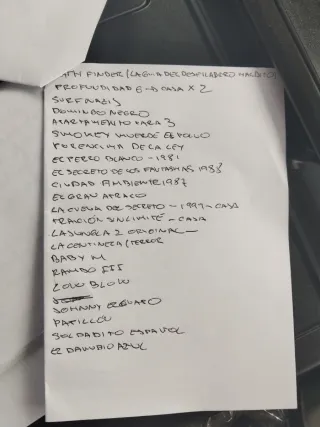 FINDER (LA GUIA DEL DESFILADERO MALDITO)
PROFUNDIDAD 6 → CASA X 2
SURF NAZIS
DOMINGO NEGRO
APARTAMENTO PARA 3
SMOKEY MUERDE EL POLVO
POR ENCIMA DE LA LEY
EL PERRO BLANCO - 1981
EL SECRETO DE LOS FANTASMAS 1988
CIUDAD AMBIENTE 1987
EL GRAN ATRACO
LA CUEVA DEL SECRETO - 1997 - CASA
TRAICIÓN SIN LIMITE - CASA
LA JUNGLA 2 ORIGINAL -
LA CONTINERA / TERROR
BABY M
RAMBO III
LOVE BLOW
JOHNNY
PATILLEU
SOLDADITO ESPAÑOL
EL DANUBIO AZUL